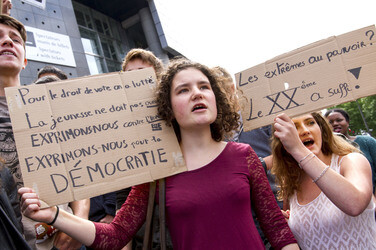 Pour le droit de vote on a lutté
La jeunesse ne doit pas
EXPRIMONS-NOUS contre
EXPRIMONS-nous pour la
DÉMOCRATIE
Les extrêmes au pouvoir ?
Le XXème
a suffi !